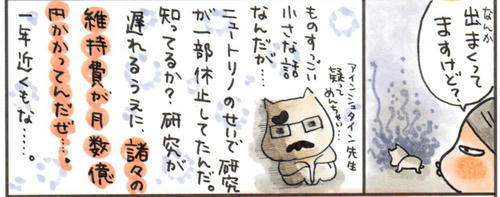 なんか
出まくって
ますけど？
アインシュタイン先生
疑って
めんご…
ものすっごい
小さな話
なんだが…
ニュートリノのせいで研究
が一部休止してたんだ。
知ってるか？研究が
遅れるうえに、諸々の
維持費が月数億
円かかってんだぜ…。
一年近くもな……。